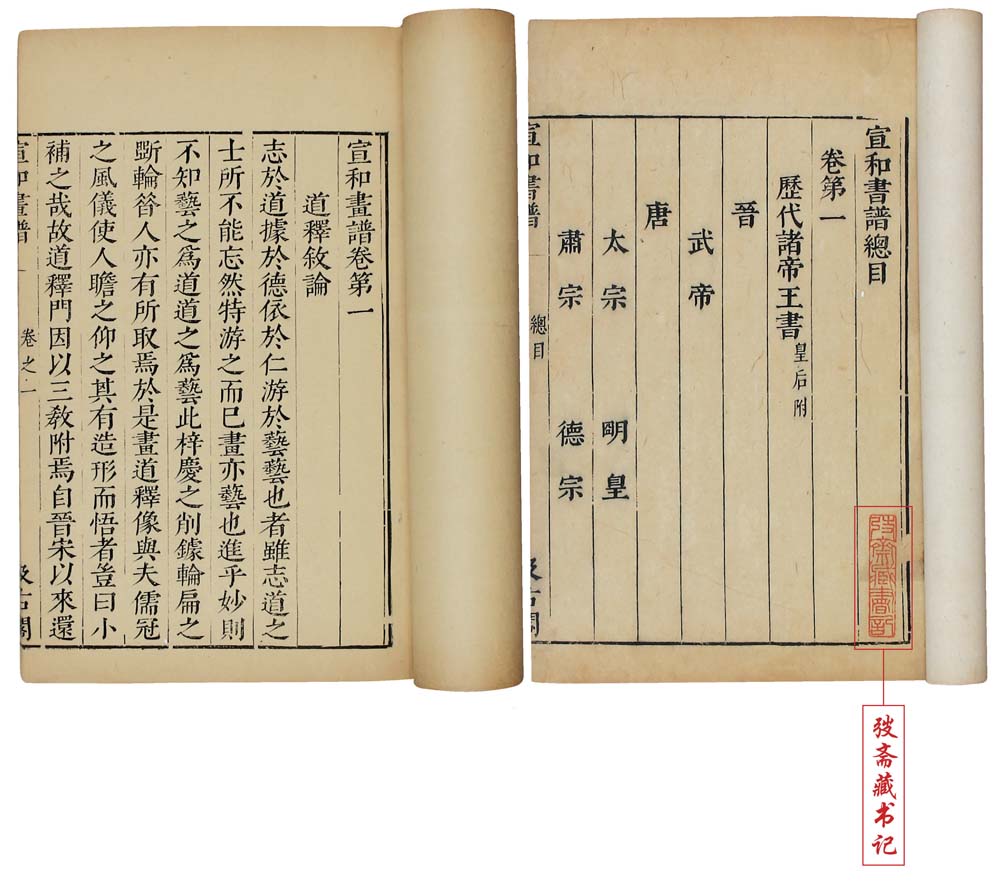 宣和書譜總目
卷第一
歷代諸帝王書皇后附
晉
武帝
唐
太宗 明皇
肅宗 德宗
宣和書譜
總目
汲古閣
弢齋藏書記
弢斋藏书记
宣和畫譜卷第一
道釋敘論
志於道據於德依於仁游於藝藝也者雖志道之
士所不能忘然特游之而巳畫亦藝也進乎妙則
不知藝之爲道道之爲藝此梓慶之削鐻輪扁之
斲輪昝人亦有所取焉於是畫道釋像與夫儒冠
之風儀使人瞻之仰之其有造形而悟者豈曰小
補之哉故道釋門因以三敎附焉自晉宋以來還
宣和畫譜
卷之一
汲古閣